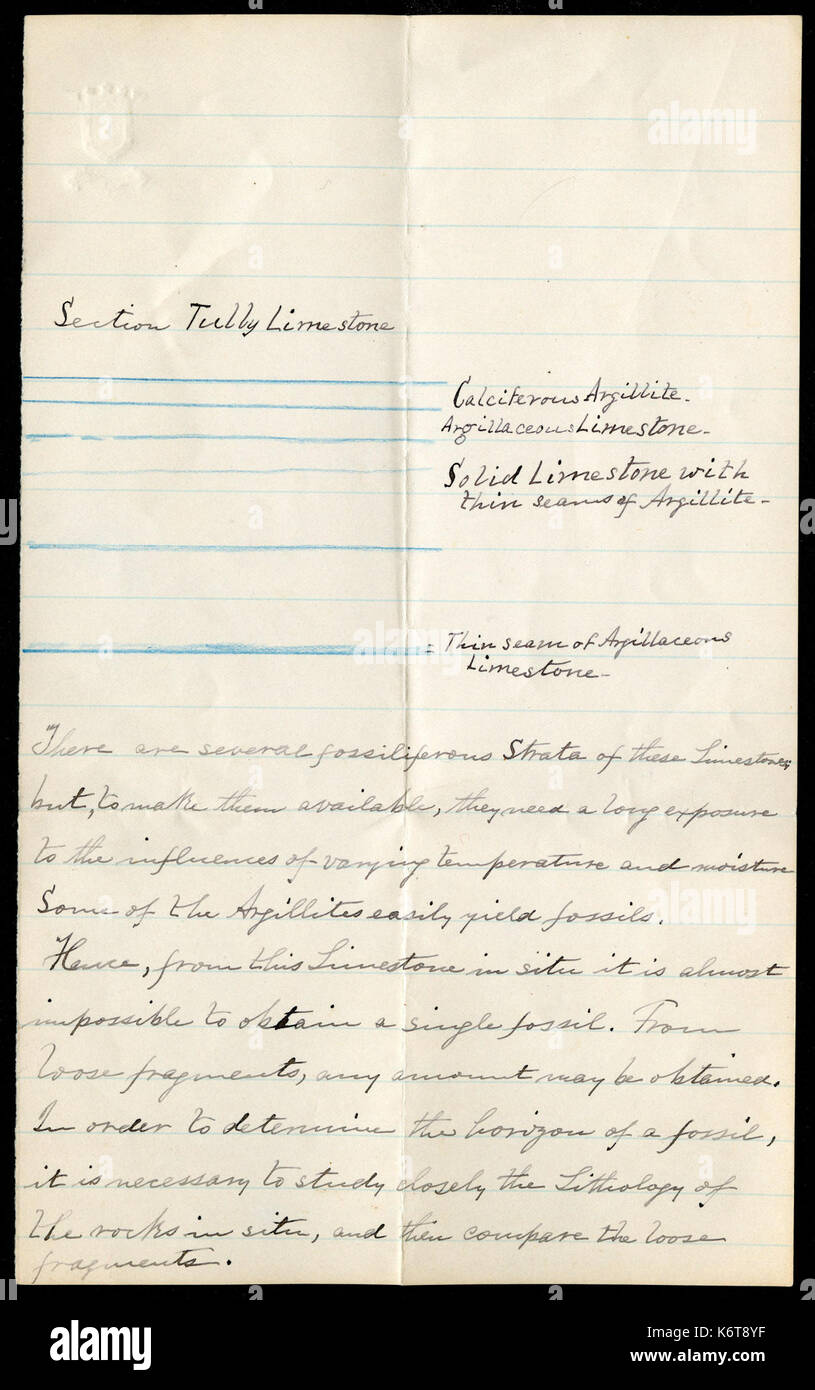 Section Tully Limestone
Calciferous Argillite-
Argillaceous Limestone-
Solid Limestone with
thin seams of Argillite-
Thin seam of Argillaceous
Limestone-
There are several fossiliferous Strata of these Limestones,
but, to make them available, they need a long exposure
to the influences of varying temperature and moisture
Some of the Argillites easily yield fossils.
Hence, from this Limestone in situ it is almost
impossible to obtain a single fossil. From
loose fragments, any amount may be obtained.
In order to determine the horizon of a fossil,
it is necessary to study closely the Lithology of
the rocks in situ, and then compare the loose
fragments.
alamy
alamy
alamy
alamy
K6T8YF
www.alamy.com